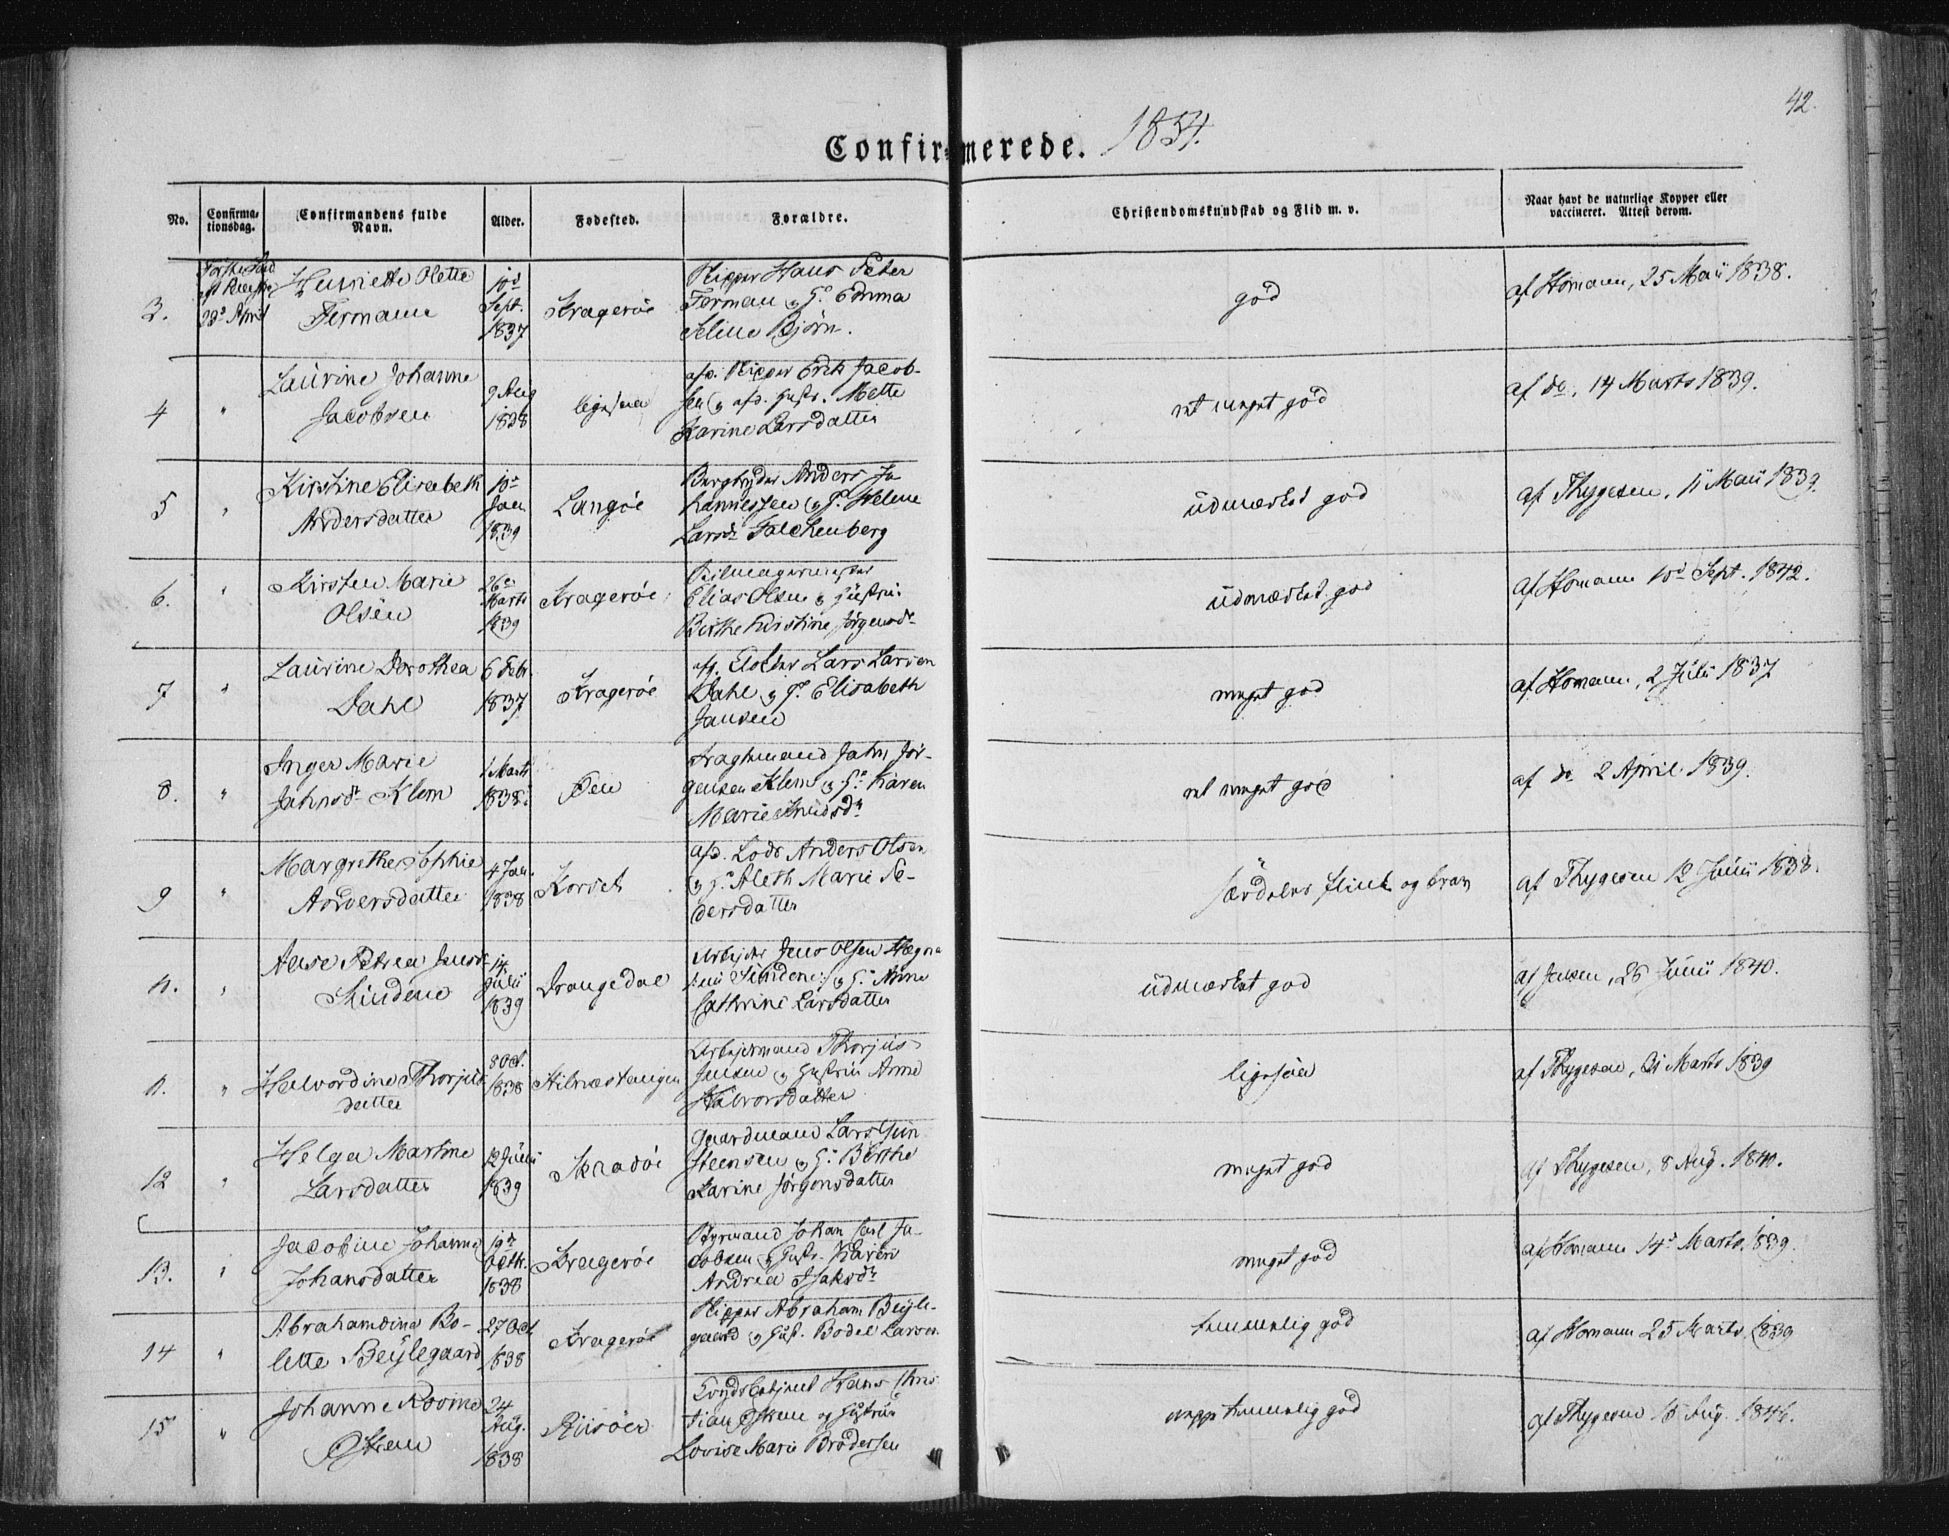 42.
Confirmerede. 1854.
No. Confirmationsdag. Confirmandens fulde Navn. Alder. Fødested. Forældre. Christendomskundskab og Flid m. v. Naar havt de naturlige Kopper eller vaccineret. Attest derom.
3. 23de April Henriette Olette
Fermann
10d
Sept.
1837
Kragerøe
Skipper Hans Peter
Ferman & H. Emma
Seline Bjørn.
god
af Homann, 25 Maii 1838.
4 " Laurine Johanne
Jacobsen
9 Aug
1838
ligesaa
afd. Skipper Erik Jacob-
sen & afd. Hustr. Mette
Karine Larsdatter
ret meget god
af do, 14 Marts 1839.
5 " Kirstine Elisabeth
Andersdatter
10d
Jan
1839
Langøe
Anders Jo
hannessen & H. Helene
Larsdr Falchenberg
udmærket god
af Thygesen, 11 Maii 1839.
6. " Kirsten Marie
Olsen
26de
Marts
1839
Kragerøe
Seilmagermester
Elias Olsen & Hustru
Birthe Kirstine Jörgensdr
udmærket god
af Homann 10d Sept. 1842.
7 " Laurine Dorothea
Dahl
6 Febr.
1837
Kragerøe
Lars Larsen
Dahl & H. Elisabeth
Jansen
meget god
af Homann, 2 Julii 1837
8. " Inger Marie
Jahnsdr Klem
1 Marts
1838.
Øen
Fragtmand Jahn Jör-
gensen Klem & H. Karen
Marie Knudsdr
ret meget god
af do 2 April 1839.
9 " Margrethe Sophie
Andersdatter
4 Jan.
1838
Korset
afd. Lods Anders Olsen
& H. Aleth Marie Pe-
dersdatter
særdeles flink og brav
af Thygesen 12 Junii 1838.
" Aase Petrea Jensdr
14
Julii
1839
Drangedal
Arbejder Jens Olsen
& H. Anne
Cathrine Larsdatter
udmærket god
af Jensen, 26 Junii 1840.
11. " Halvordine Thorjus
datter
8 Oct.
1838
Arbejdsmand Thorjus
Jensen & Hustru Anne
Halvorsdatter
ligesaa
af Thygesen, 21 Marts 1839
12 " Helga Martine
Larsdatter
12 Junii
1839
Skaadøe
Gaardmand Lars Gun
steensen & H. Birthe
Karine Jørgensdatter
meget god
af Thygesen, 8 Aug. 1840.
13. " Jacobine Johanne
Johansdatter
19d
Octbr.
1838
Kragerøe
Styrmand Johan Carl Ja-
cobsen & Hustr. Karen
Andrea Isaksdr
meget god
af Homann 14d Marts 1839.
14 " Abrahamdine Bo-
lette Beylegaard
27 Oct
1838
Kragerøe
Skipper Abraham Beyle-
gaard & Hust. Bodel Larsen
temmelig god
af Homann 25 Marts 1839
15 " Johanne Rosine
24
Aug.
1838
Riisöer
Hans Chris
tian & Hustru
Lovise Marie Brodersen
neppe temmelig god
af Thygesen 18 Aug. 1846.